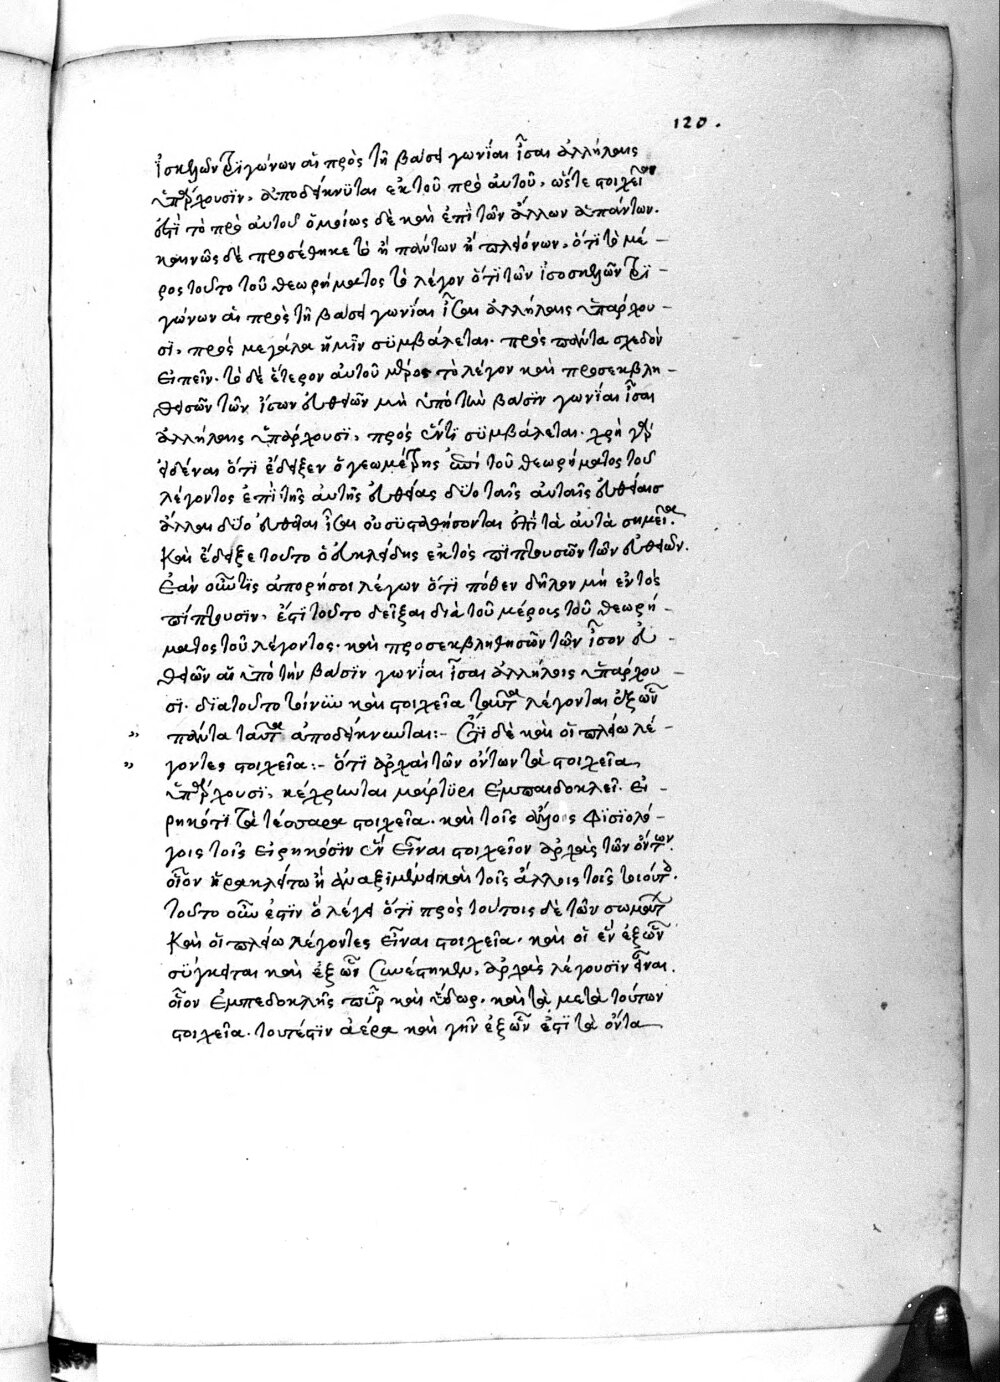 120.
ἰσοσκελῶν τριγώνων αἱ πρὸς τῇ βάσει γωνίαι ἴσαι ἀλλήλαις
ὑπάρχουσιν, ἀποδείκνυται ἐκ τοῦ πρὸ αὐτοῦ, ὥστε στοιχεῖον
ἐστὶ τὸ πρὸ αὐτοῦ ὁμοίως δὲ καὶ ἐπὶ τῶν ἄλλων ἁπάντων.
καινῶς δὲ προσέθηκε τὸ ἢ πάντων ἢ πλείόνων, ὅτι τὸ μέ-
ρος τοῦτο τοῦ θεωρήματος τὸ λέγον ὅτι τῶν ἰσοσκελῶν τρι-
γώνων αἱ πρὸς τῇ βάσει γωνίαι ἴσαι ἀλλήλαις ὑπάρχου-
σι, πρὸς μεγάλα ἡμῖν συμβάλεται. πρὸς πάντα σχεδὸν
εἰπεῖν. τὸ δὲ ἕτερον αὐτοῦ μέρος τὸ λέγον καὶ προσεκβλη-
θεισῶν τῶν ἴσων εὐθειῶν μὴ ὑπὸ τὴν βάσιν γωνίαι ἴσαι
ἀλλήλαις ὑπάρχουσι, πρὸς ἕν τι συμβάλεται. χρὴ γὰρ
εἰδέναι ὅτι ἔδειξεν ὁ γεωμέτρης ἐπὶ τοῦ θεωρήματος τοῦ
λέγοντος ἐπὶ τῆς αὐτῆς εὐθείας δύο ταῖς αὐταῖς εὐθείαις
ἄλλαι δύο εὐθεῖαι ἴσαι οὐ συσταθήσονται ἐπὶ τὰ αὐτὰ σημεῖα.
Καὶ ἔδειξε τοῦτο ὁ εὐκλείδης ἐκτὸς πιπτουσῶν τῶν εὐθειῶν.
Ἐὰν οὖν τις ἀπορήσοι λέγων ὅτι πόθεν δῆλον μὴ ἐντὸς
πίπτουσιν, ἔστι τοῦτο δεῖξαι διὰ τοῦ μέρους τοῦ θεωρή-
ματος τοῦ λέγοντος. καὶ προσεκβληθεισῶν τῶν ἴσον εὐ-
θειῶν αἱ ὑπὸ τὴν βάσιν γωνίαι ἴσαι ἀλλήλαις ὑπάρχου-
σι. διὰ τοῦτο τοίνυν καὶ στοιχεῖα ταῦτα λέγονται ἐξ ὧν
πάντα ταῦτα ἀποδείκνυνται:- Ἔτι δὲ καὶ οἱ πλείω λέ-
γοντες στοιχεῖα:- ὅτι ἀρχαὶ τῶν ὄντων τὰ στοιχεῖα
ὑπάρχουσι, κέχρηται μάρτυρι Ἐμπαιδοκλεῖ. εἰ-
ρηκότι τὰ τέσσαρα στοιχεῖα. καὶ τοῖς ἄλλοις φυσιολό-
γοις τοῖς εἰρηκόσιν ἓν εἶναι στοιχεῖον ἀρχὰς τῶν ὄντων.
οἷον ἡρακλείτω ἢ ἀναξιμένει καὶ τοῖς ἄλλοις τοῖς τοιούτοις.
τοῦτο οὖν ἐστιν ὃ λέγει ὅτι πρὸς τούτοις δὲ τῶν σωμάτων
Καὶ οἱ πλείω λέγοντες εἶναι στοιχεῖα. καὶ οἱ ἓν ἐξ ὧν
σύγκειται καὶ ἐξ ὧν συνέστηκεν, ἀρχὰς λέγουσιν εἶναι.
οἷον Ἐμπεδοκλῆς πῦρ καὶ ὕδωρ. καὶ τὰ μετὰ τούτων
στοιχεῖα. τουτέστιν ἀέρα καὶ γῆν ἐξ ὧν ἐστὶ τὰ ὄντα